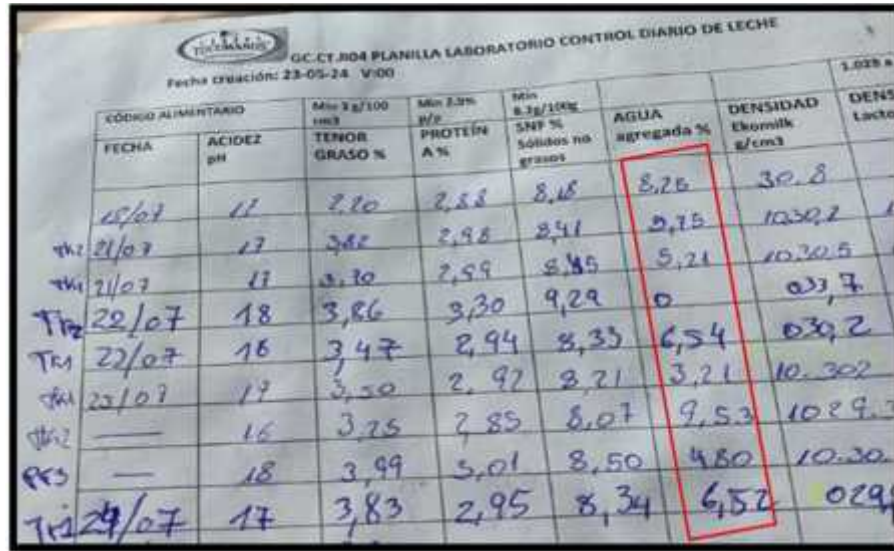 TUCUMANOS
GC.CT.R04 PLANILLA LABORATORIO CONTROL DIARIO DE LECHE
Fecha creación: 23-05-24 V:00
CÓDIGO ALIMENTARIO Min 3 g/100 cm3 Min 2.9% p/p Min 8.2g/100g 1.028 a
FECHA ACIDEZ pH TENOR GRASO % PROTEÍNA % SNF % Sólidos no grasos AGUA agregada % DENSIDAD Ekomilk g/cm3 DENS Lacto
18/07 17 2,20 2,88 8,18 8,26 30.8
TK2 21/07 17 3,82 2,98 8,41 5,75 1030,2
TK1 21/07 17 3,70 2,99 8,45 5,21 1030,5
TK2 22/07 18 3,86 3,30 9,29 0 033,7
TK1 22/07 16 3,47 2,94 8,33 6,54 030,2
TK1 23/07 17 3,50 2,92 8,21 3,21 10.302
TK2 — 16 3,25 2,85 8,07 9,53 1029.
— 18 3,99 3,01 8,50 4,80 10.30.
TK1 24/07 17 3,83 2,95 8,34 6,52 029,